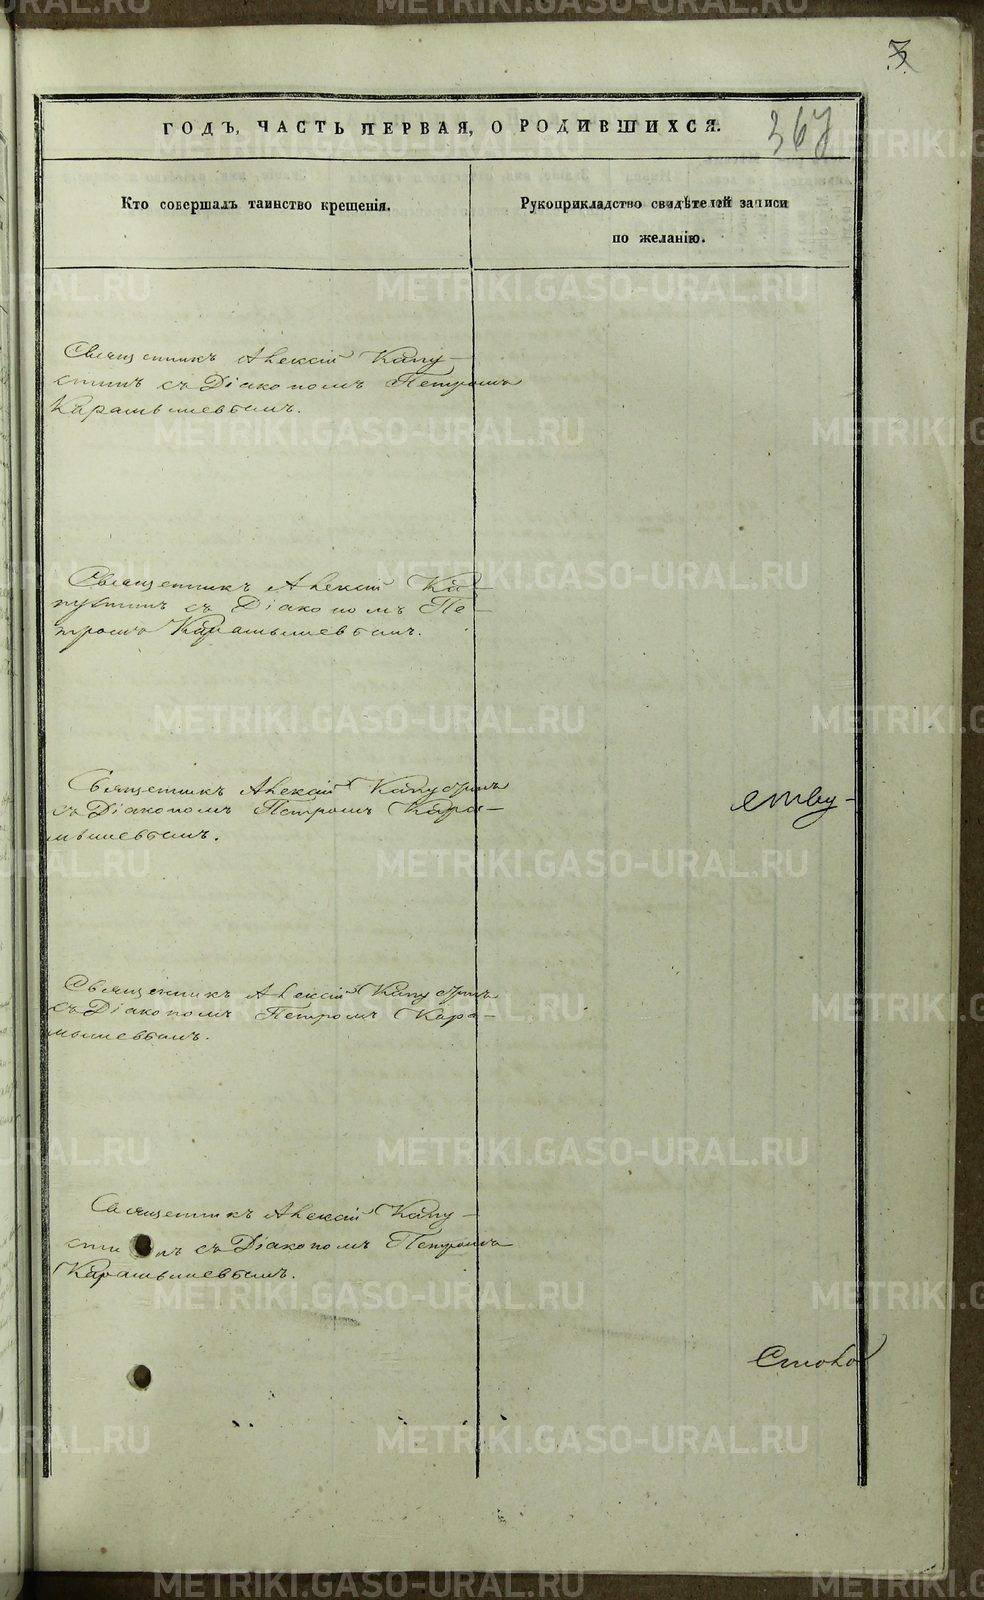 3.
367
ГОДЪ, ЧАСТЬ ПЕРВАЯ, О РОДИВШИХСЯ.
Кто совершалъ таинство крещенія.
Рукоприкладство свидѣтелей записи
по желанію.
Священникъ Алексій Капу-
стинъ съ Діакономъ Петромъ
Карамышевымъ.
Священникъ Алексій Ка-
пустинъ съ Діакономъ Пе-
тромъ Карамышевымъ.
Священникъ Алексій Капустинъ
съ Діакономъ Петромъ Кара-
мышевымъ.
ству-
Священникъ Алексій Капустинъ
съ Діакономъ Петромъ Кара-
мышевымъ.
Священникъ Алексій Капу-
стинъ съ Діакономъ Петромъ
Карамышевымъ.
METRIKI.GASO-URAL.RU